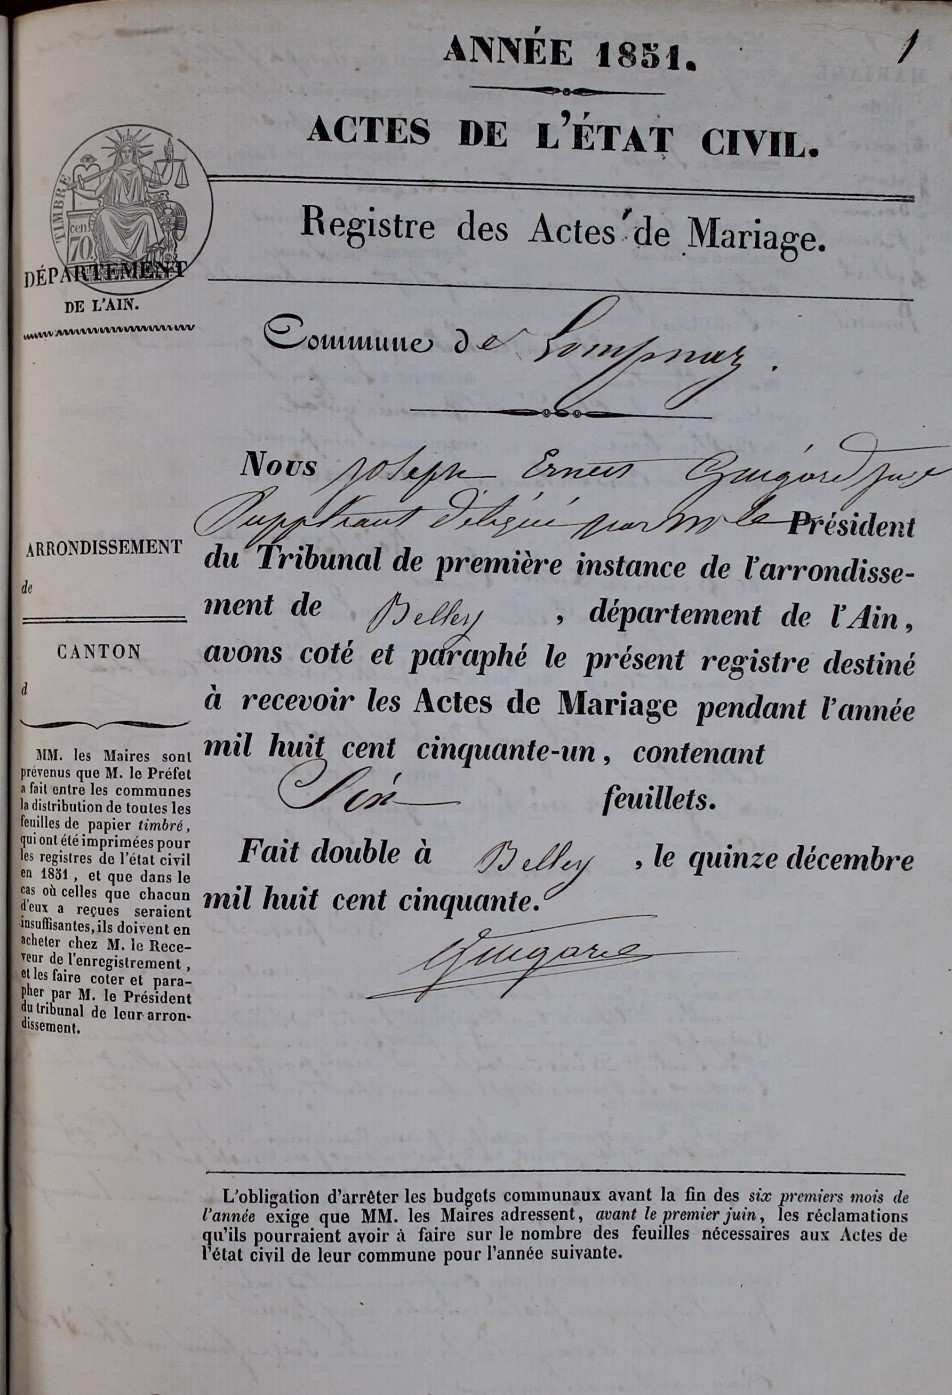 1
ANNÉE 1851.
ACTES DE L'ÉTAT CIVIL.
Registre des Actes de Mariage.
TIMBRE
70 cent
DÉPARTEMENT
DE L'AIN.
Commune de Lompnaz.
Nous Joseph Ernest Guigard juge
Suppléant délégué par M. le Président
du Tribunal de première instance de l'arrondisse-
ment de Belley, département de l'Ain,
avons coté et paraphé le présent registre destiné
à recevoir les Actes de Mariage pendant l'année
mil huit cent cinquante-un, contenant
Six feuillets.
Fait double à Belley, le quinze décembre
mil huit cent cinquante.
Guigard
ARRONDISSEMENT
de
CANTON
d
MM. les Maires sont
prévenus que M. le Préfet
a fait entre les communes
la distribution de toutes les
feuilles de papier timbré,
qui ont été imprimées pour
les registres de l'état civil
en 1851, et que dans le
cas où celles que chacun
d'eux a reçues seraient
insuffisantes, ils doivent en
acheter chez M. le Rece-
veur de l'enregistrement,
et les faire coter et para-
pher par M. le Président
du tribunal de leur arron-
dissement.
L'obligation d'arrêter les budgets communaux avant la fin des six premiers mois de
l'année exige que MM. les Maires adressent, avant le premier juin, les réclamations
qu'ils pourraient avoir à faire sur le nombre des feuilles nécessaires aux Actes de
l'état civil de leur commune pour l'année suivante.